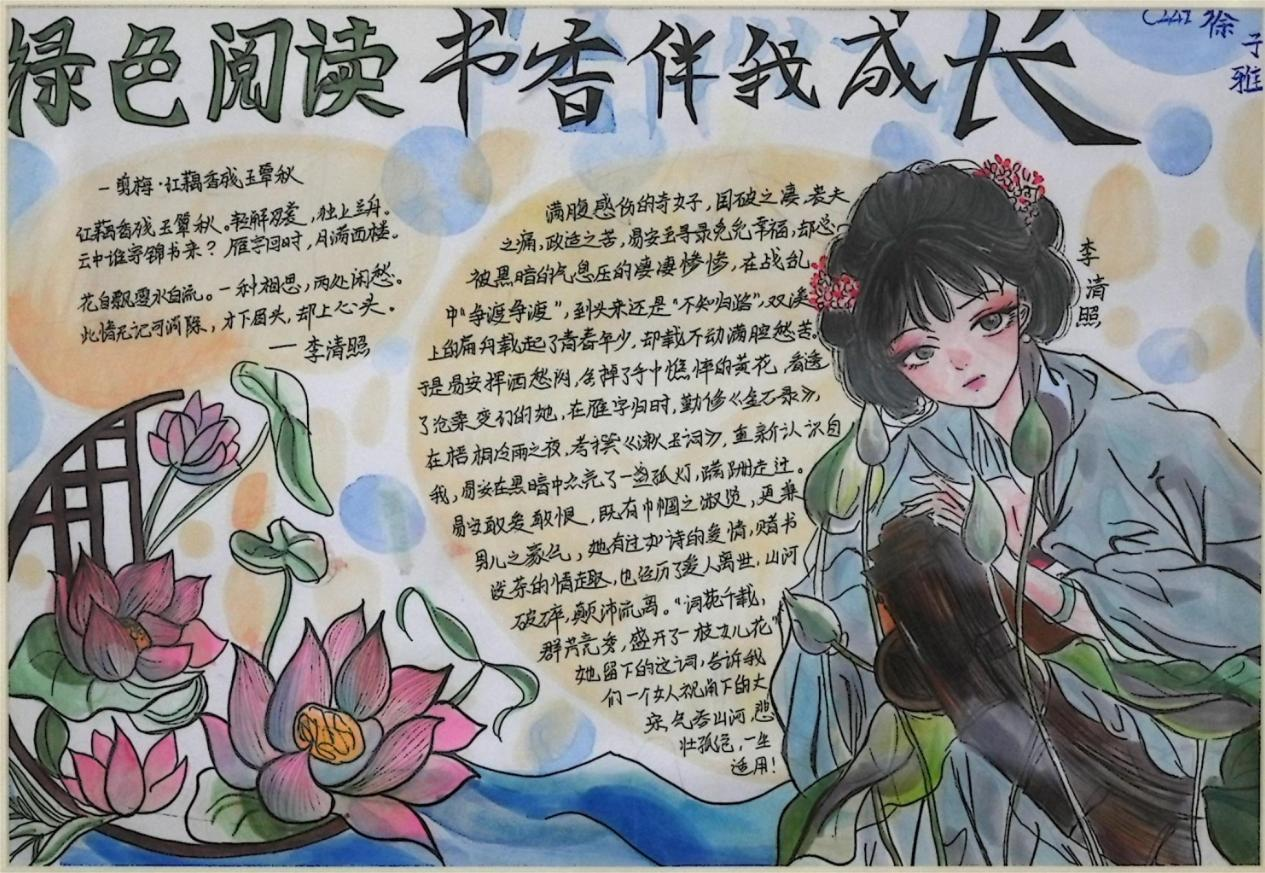 绿色阅读 书香伴我成长
C241 徐子雅
一剪梅·红藕香残玉簟秋
红藕香残玉簟秋。轻解罗裳，独上兰舟。
云中谁寄锦书来？雁字回时，月满西楼。
花自飘零水自流。一种相思，两处闲愁。
此情无计可消除，才下眉头，却上心头。
——李清照
满腹感伤的奇女子，国破之凄，丧夫
之痛，政治之苦，易安至寻录免允幸福，却总
被黑暗的气息压的凄凄惨惨，在战乱
中“争渡争渡”，到头来还是“不知归路”，双溪
上的扁舟载起了青春年少，却载不动满腔愁苦。
于是易安挥洒愁闷，舍掉了手中憔悴的黄花，看透
了沧桑变幻的她，在雁字归时，勤修《金石录》，
在梧桐冷雨之夜，考撰《漱玉词》，重新认识自
我，易安在黑暗中点亮了一盏孤灯，蹒跚走过。
易安敢爱敢恨，既有巾帼之淑贤，更兼
男儿之豪气，她有过如诗的爱情，赌书
泼茶的情趣，也经历了爱人离世，山河
破碎，颠沛流离。“词苑千载，
群芳竞秀，盛开了一枝女儿花”
她留下的这词，告诉我
们一个女人视角下的大
宋，气吞山河，悲
壮孤绝，一生
适用！
李清照